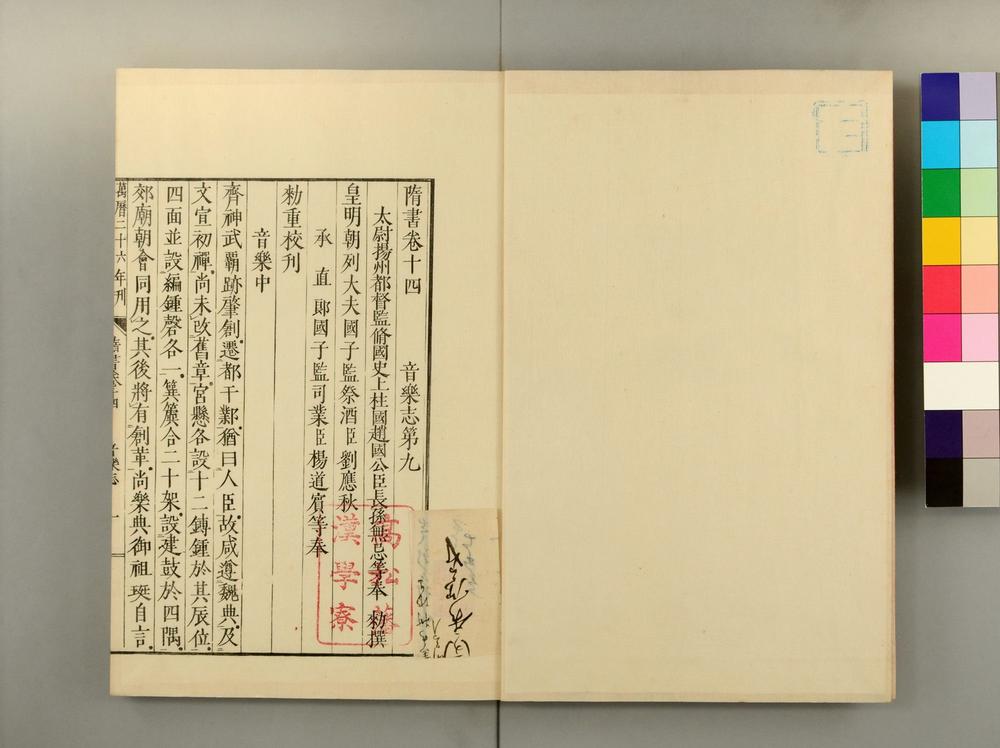 隋書卷十四　音樂志第九
太尉揚州都督監脩國史上柱國趙國公臣長孫無忌等奉　勑撰
皇明朝列大夫國子監祭酒臣劉應秋
承直郎國子監司業臣楊道賓等奉
勑重校刊
音樂中
齊神武霸跡肇創遷都于鄴猶曰人臣故咸遵魏典及
文宣初禪尚未改舊章宮懸各設十二鎛鍾於其辰位
四面並設編鍾磬各一簨簴合二十架設建鼓於四隅
郊廟朝會同用之其後將有創革尚樂典御祖珽自言
萬曆二十六年刊　隋書卷十四　音樂志　一
漢學寮